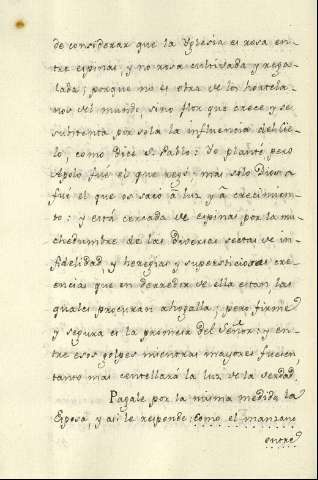 de considerar que la Yglesia es rosa en-
tre espinas, y no rosa cultivada y rega-
lada, porque no es obra de los hortela-
nos del mundo, sino flor que crece y se
sustenta por sola la influencia del Cie-
lo, como Dice S. Pablo: Yo planté pero
Apolo fue el que regó, mas solo Dios
fue el que os sacó a luz y a crecimien-
to: y está cercada de espinas por la mu-
chedumbre de las diversas sectas de in-
fidelidad, y heregias y supersticiosas cre-
encias que en derredor de ella estan, las
quales procuran ahogalla; pero firme
y segura es la promesa del Señor: y en-
tre esos golpes mientras mayores fuesen,
tanto mas centellará la luz de la verdad.
Pagale por la misma medida la
Esposa, y asi le responde como el manzano
entre